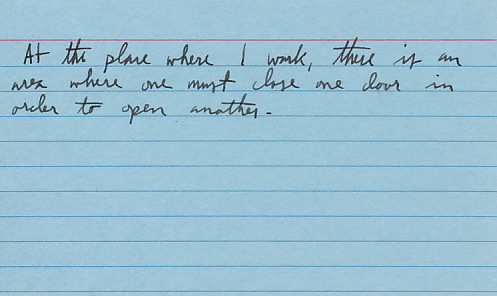 At the place where I work, there is an
area where one must close one door in
order to open another.